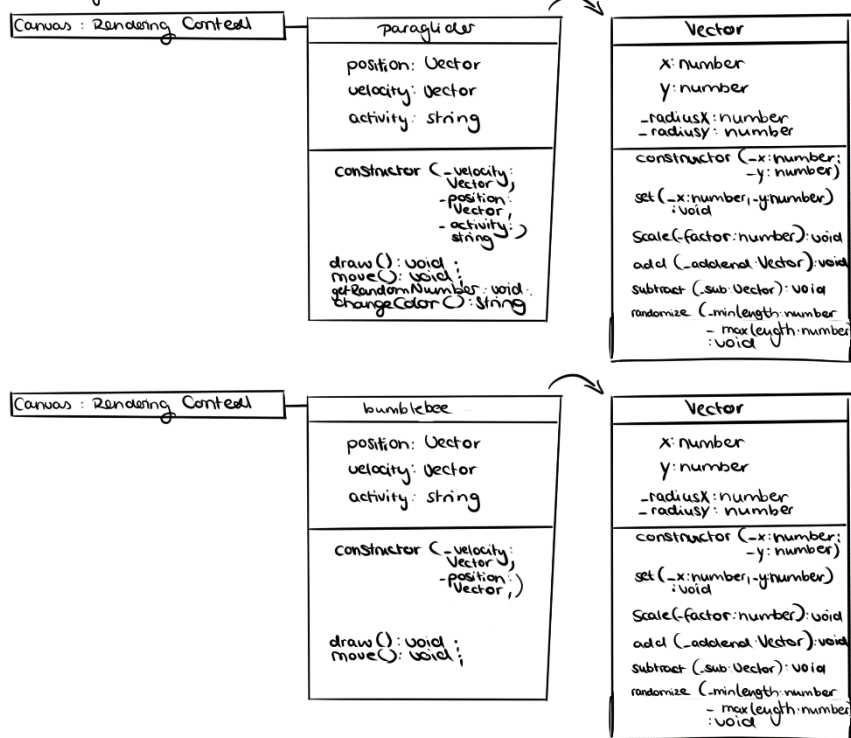 Canvas : Rendering Context
paraglider
position: Vector
velocity: Vector
activity: string
constructor (_velocity:
Vector,
-position:
Vector,
- activity:)
string
draw(): void ;
move(): void ;
getRandomNumber: void.
changeColor(): String
Vector
x: number
y: number
_radiusX: number
_radiusY: number
constructor (_x: number;
_y: number)
set (_x: number, _y: number)
: void
Scale(_factor: number): void
add (_addend: Vector): void
subtract (_sub: Vector): void
randomize (_minlength: number
- maxlength: number)
: void
Canvas : Rendering Context
bumblebee
position: Vector
velocity: Vector
activity: string
constructor (_velocity:
Vector,
-position:
Vector,)
draw(): void ;
move(): void ;
Vector
x: number
y: number
_radiusX: number
_radiusY: number
constructor (_x: number;
_y: number)
set (_x: number, _y: number)
: void
Scale(_factor: number): void
add (_addend: Vector): void
subtract (_sub: Vector): void
randomize (_minlength: number
- maxlength: number)
: void